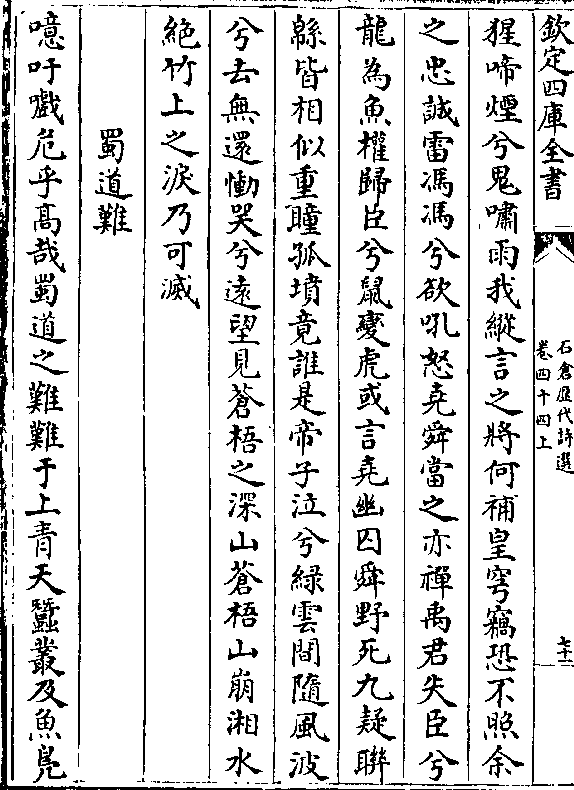 欽定四庫全書
石倉歷代詩選
卷四十四上
七十二
猩啼煙兮鬼嘯雨我縱言之將何補皇穹竊恐不照余
之忠誠雷馮馮兮欲吼怒堯舜當之亦禪禹君失臣兮
龍為魚權歸臣兮鼠變虎或言堯幽囚舜野死九疑聯
緜皆相似重瞳孤墳竟誰是帝子泣兮綠雲間隨風波
兮去無還慟哭兮遠望見蒼梧之深山蒼梧山崩湘水
絶竹上之淚乃可滅
蜀道難
噫吁戲危乎髙哉蜀道之難難于上青天蠶叢及魚鳧